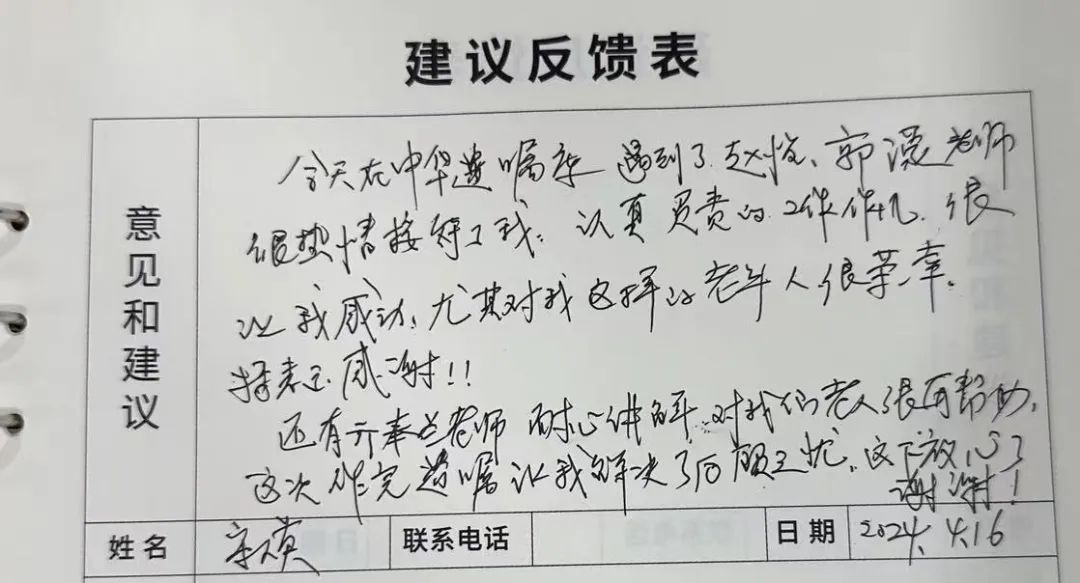 建议反馈表
意见和建议
今天在中华遗嘱库遇到了赵悦、郭滢老师
很热情接待了我。认真负责的工作作风、很
让我感动，尤其对我这样的老年人很荣幸。
特表示感谢!!
还有亓奉老师耐心讲解，对我们老人很有帮助，
这次作完遗嘱让我解决了后顾之忧，这下放心了
谢谢！
姓名 英 联系电话 日期 2024.4.16